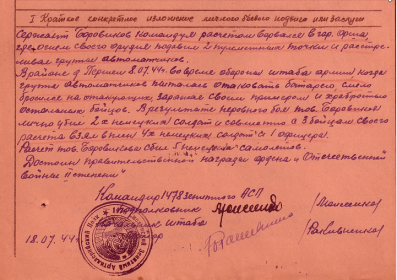 I Краткое конкретное изложение личного боевого подвига или заслуги
Сержант Боровиков командуя расчетом ворвался в гор. Орша,
где огнем своего орудия подавил 2 пулеметных точки и расстре-
ливал группы автоматчиков.
В районе д Пережи 8.07.44г. во время обороны штаба армии когда
группа автоматчиков пыталась атаковать батарею, смело
бросился на атакующих заражая своим примером и храбростью
остальных бойцов. В результате неравного боя тов. Боровиков
лично убил 2х немецких солдат и совместно с 3 бойцами своего
расчета взял в плен 4х немецких солдат и 1 офицера.
Расчет тов. Боровикова сбил 5 немецких самолетов.
Достоин правительственной награды ордена "Отечественной
Войны II степени"
Командир 1478 зенитного АП
подполковник /Моисеенко/
штаба
18.07.44г.